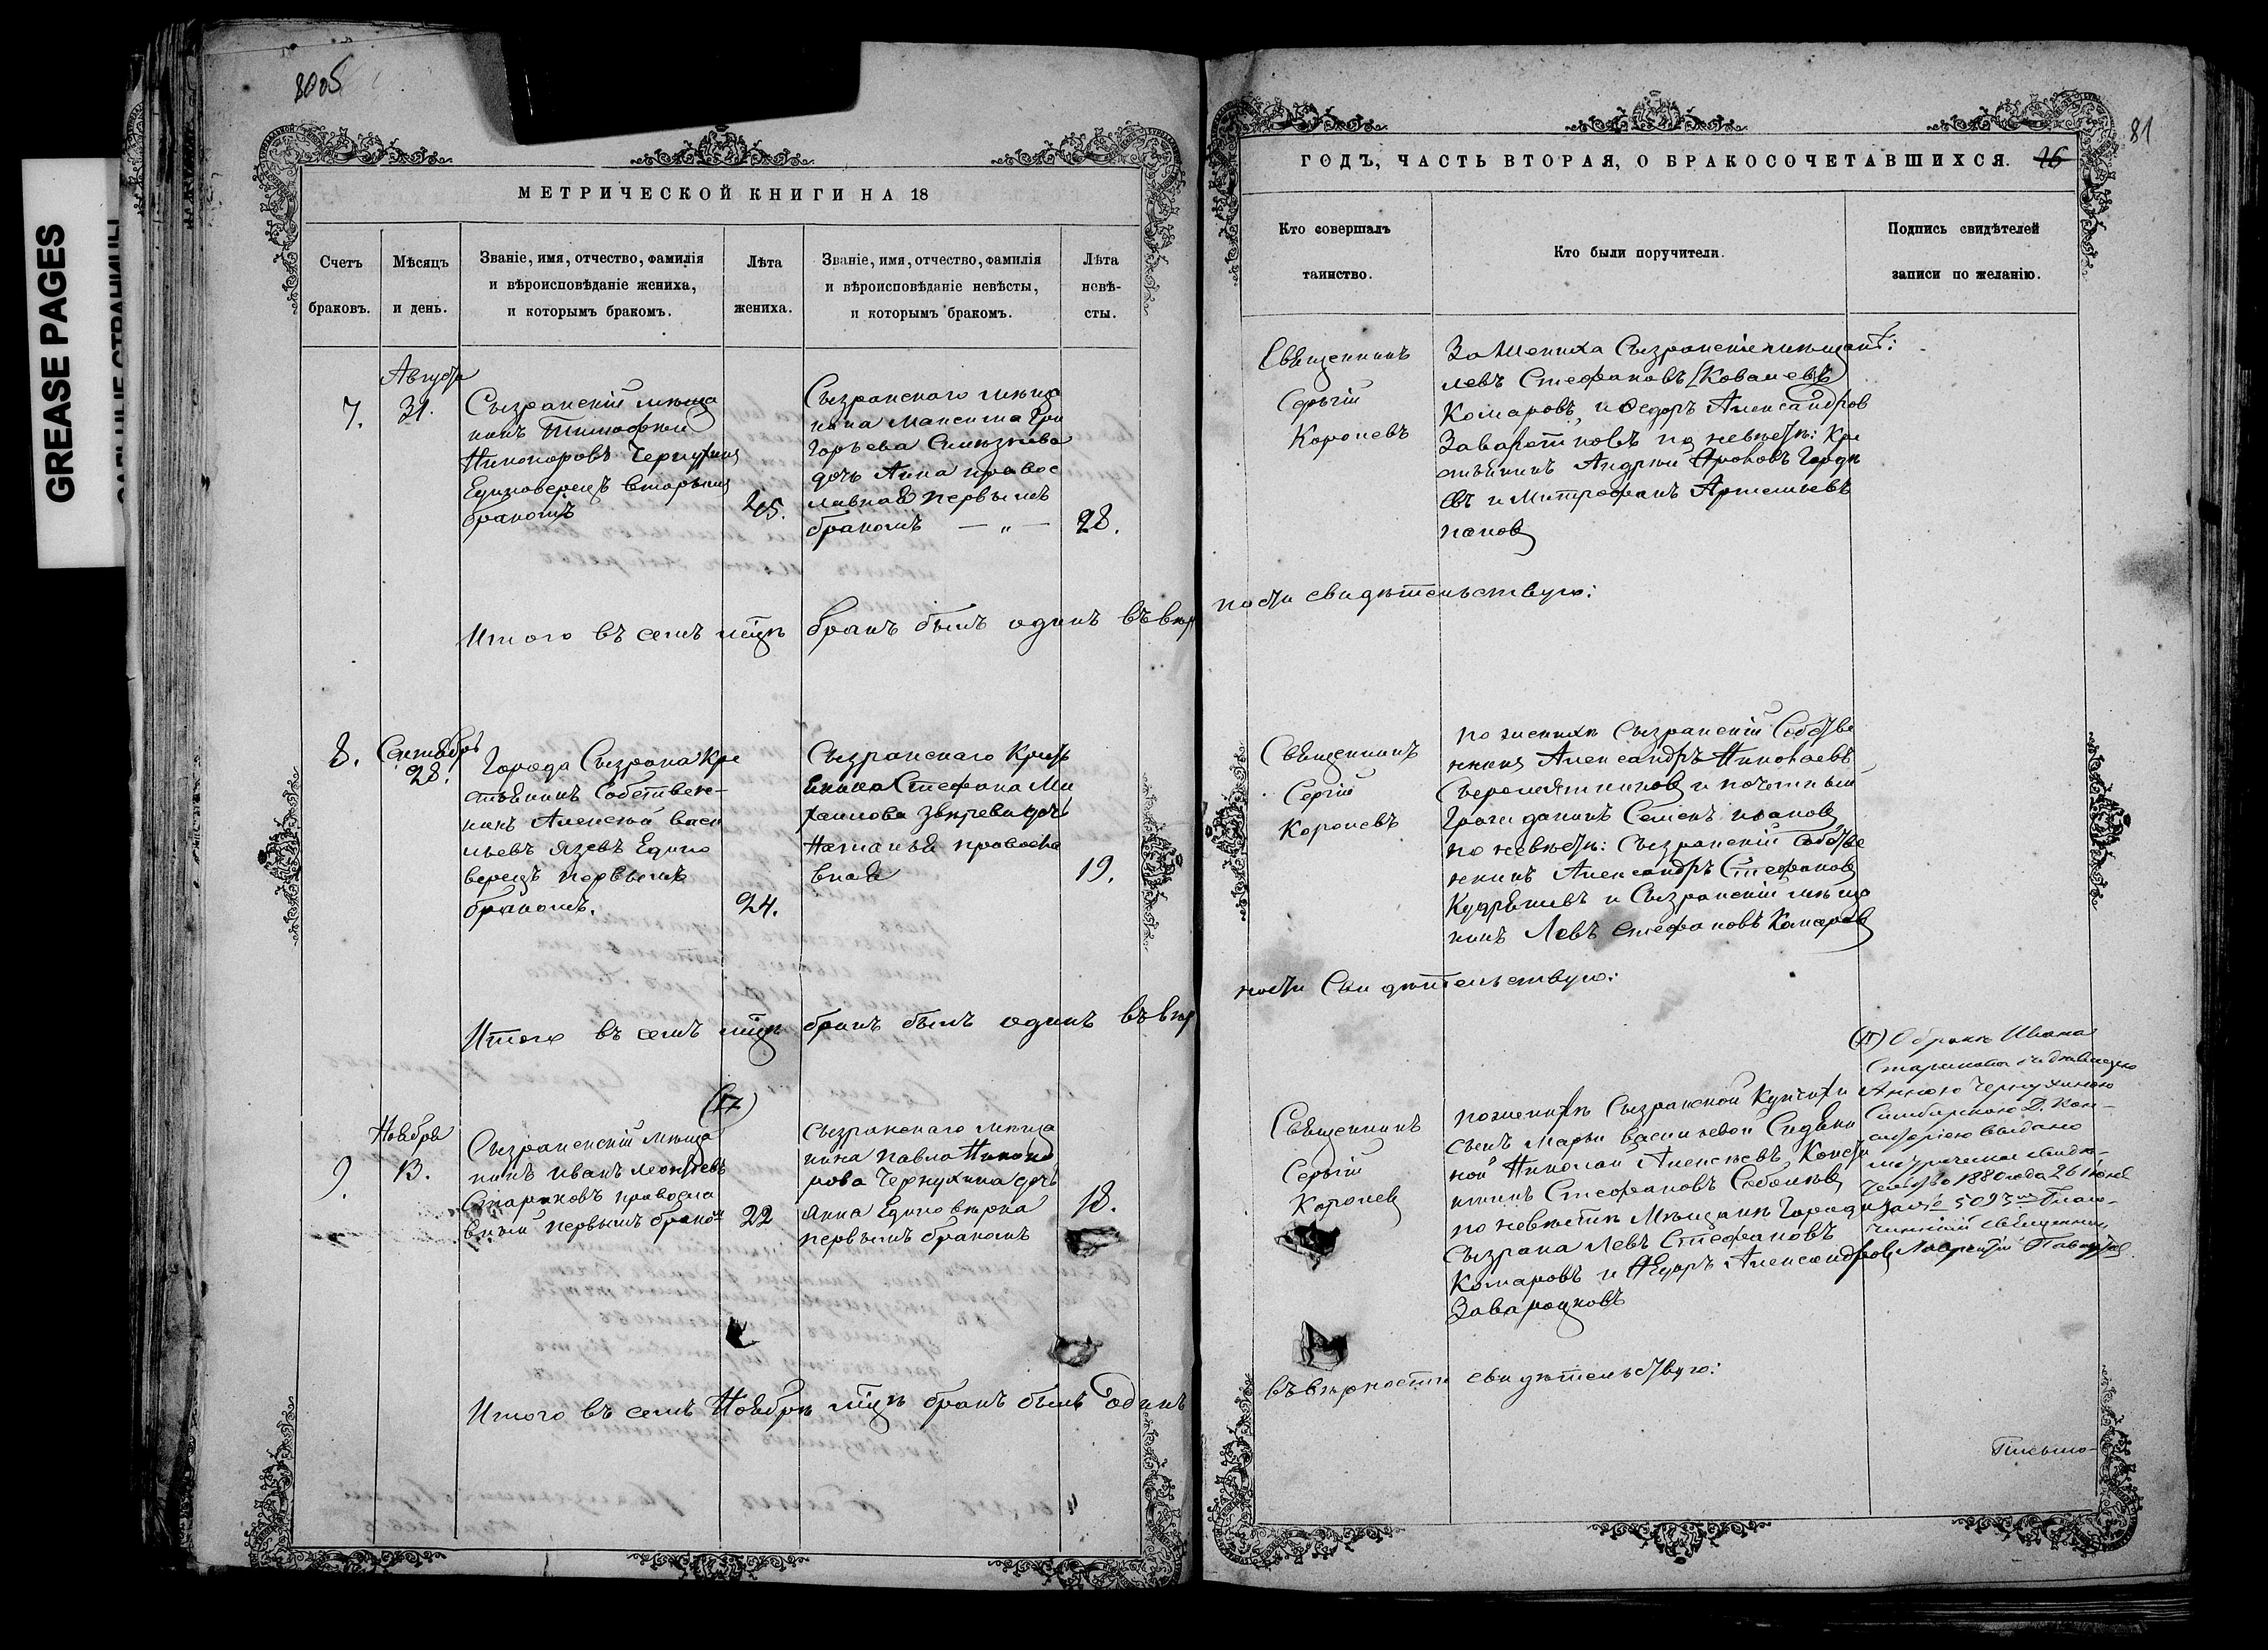 GREASE PAGES
8005
МЕТРИЧЕСКОЙ КНИГИ НА 18
Счетъ
браковъ.
Мѣсяцъ
и день.
Званіе, имя, отчество, фамилія
и вѣроисповѣданіе жениха,
и которымъ бракомъ.
Лѣта
жениха.
Званіе, имя, отчество, фамилія
и вѣроисповѣданіе невѣсты,
и которымъ бракомъ.
Лѣта
невѣ-
сты.
7.
Августа
31.
Сызранскій мѣща
нинъ Тимофей
Никоноровъ Чернухинъ
Единоверецъ вторымъ
бракомъ
45.
Сызранскаго мѣща
нина Максима Гри
горьева
дочь Анна правос
лавная первымъ
бракомъ — „ —
28.
Итого въ семъ мцѣ бракъ былъ одинъ въ вѣр
8.
Сентябрь
28.
Города Сызрана Кре
стьянинъ Собствен-
никъ Алексѣй Васи
льевъ Язевъ Едино
верецъ первымъ
бракомъ.
24.
Сызранскаго Кресть
янина Стефана Ми
хаилова Звѣрева дочь
Наталья правосла
вная
19.
Итого въ семъ мцѣ бракъ былъ одинъ въ вѣр
9.
Ноября
13.
Сызраненскій мѣща
нинъ Иванъ Леонтьевъ
Стариковъ правосла
вный первымъ бракомъ
22
Сызранскаго мѣща
нина Павла Никоно
рова Чернухина дочь
Анна Единовѣрка
первымъ бракомъ
18.
Итого въ семъ Ноябрѣ мцѣ бракъ былъ одинъ
81
ГОДЪ, ЧАСТЬ ВТОРАЯ, О БРАКОСОЧЕТАВШИХСЯ. 16
Кто совершалъ
таинство.
Кто были поручители.
Подпись свидѣтелей
записи по желанію.
Священникъ
Сергій
Королевъ
За жениха Сызранскіе мѣщане:
Левъ Стефановъ
Комаровъ, и Ѳедоръ Александров
по невѣстѣ: Кре
стьянинъ Андрей
и Митрофанъ Артемьевъ
Попов
ности свидѣтельствую:
Священникъ
Сергій
Королевъ
по женихѣ Сызранскій Собстве
нникъ Александръ Николаевъ
Сыромятников и почетный
Гражданинъ Семенъ Попов
по невѣстѣ: Сызранскій Собстве
нникъ Александръ Стефанов
и Сызранскій мѣща
нинъ Левъ Стефановъ Комаров
ности Свидѣтельствую:
Священникъ
Сергій
Королев
по женихѣ Сызранской Купчихи
сынъ Марьи Васильевой
ной Николай Алексѣевъ, Конста
нтинъ Стефановъ
по невѣстѣ Мѣщане Города
Сызрана Левъ Стефановъ
Комаровъ и Ѳедоръ Александров
О бракѣ Ивана
Старикова съ дѣвицею
Анною Чернухиною
Симбирскою Д. Кон-
систоріею выдано
метрическое свидѣ-
тельство 1880 года 26 Іюня
за № 5093 Благо-
чинный Священник
въ вѣрности свидѣтельствую:
Письмо-